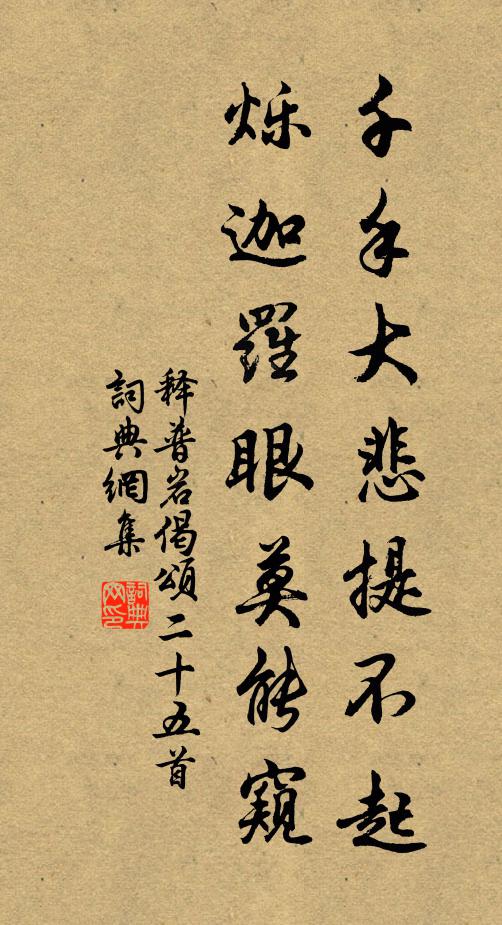 千手大悲提不起
烁迦羅眼莫能窺
释普岩偈頌二十五首
詞典網集
詞典
网印